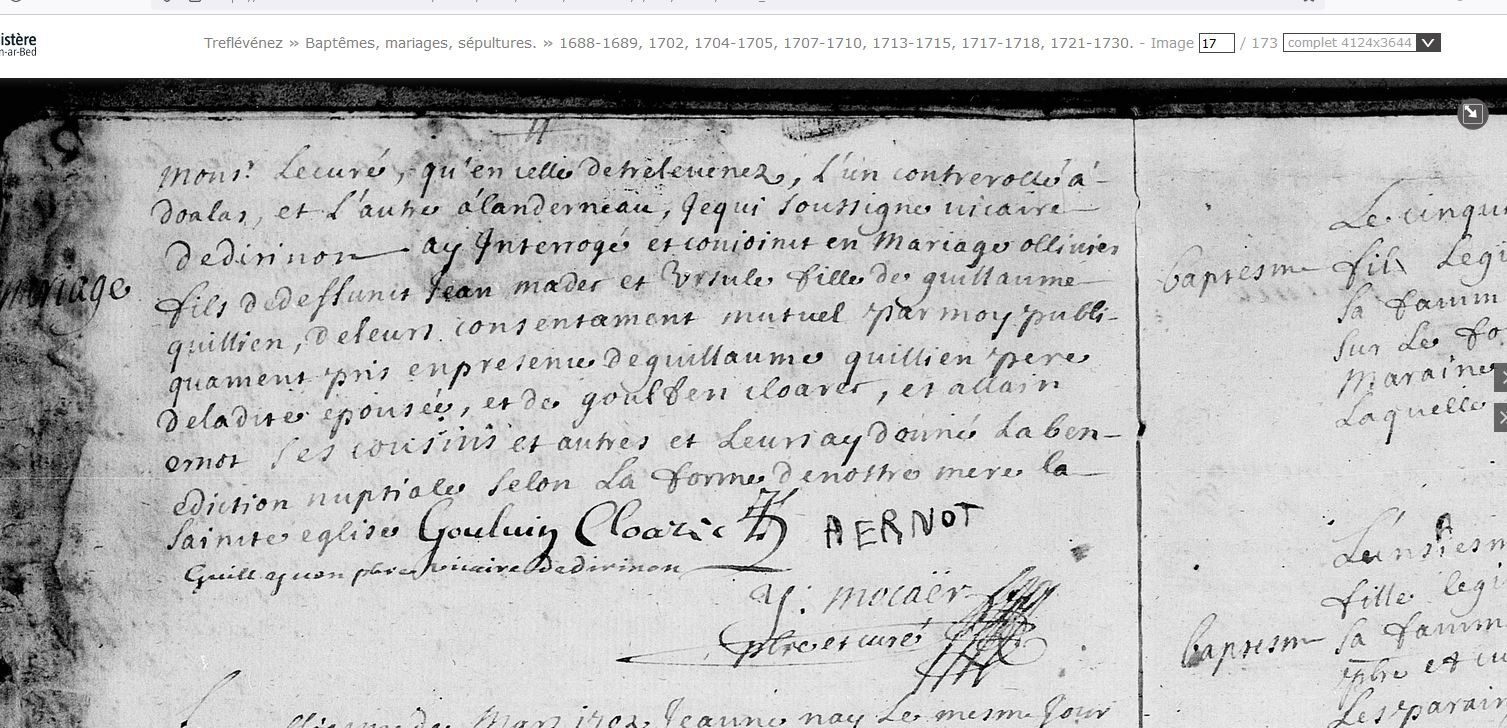 istère
n-ar-Bed
Treflévénez » Baptêmes, mariages, sépultures. » 1688-1689, 1702, 1704-1705, 1707-1710, 1713-1715, 1717-1718, 1721-1730. - Image 17 / 173 complet 4124x3644
mons.r Le curé, qu'en celle de trelevenez, L'un controrollé á
doalas, et L'autre á landerneau, Je qui soussigne vicaire
de dirinon ay Interrogé et conjoinct en Mariage ollivier
mariage
fils de deffunct Jean madec et Vrsule fille de guillaume
quillien, de leurs consentament mutuel par moy publi-
quament pris en presence de guillaume quillien pere
de la dite epousée, et de goulfen cloarec, et allain
ernot ses cousins et autres et Leurs ay donné La ben-
ediction nuptiale selon La forme de nostre mere la
saincte eglise Gouluin Cloarec AERNOT
Guill pbre vicaire de dirinon
Y: mocaër
pbre et curé
Mars 1702 Jeanne nay Le mesme Jour
Le cinqu
bapresme fils Legi
sa famm
sur Le fo
Maraine
Laquelle
fille legi
bapresme sa famm
pbre et cu
Les parain